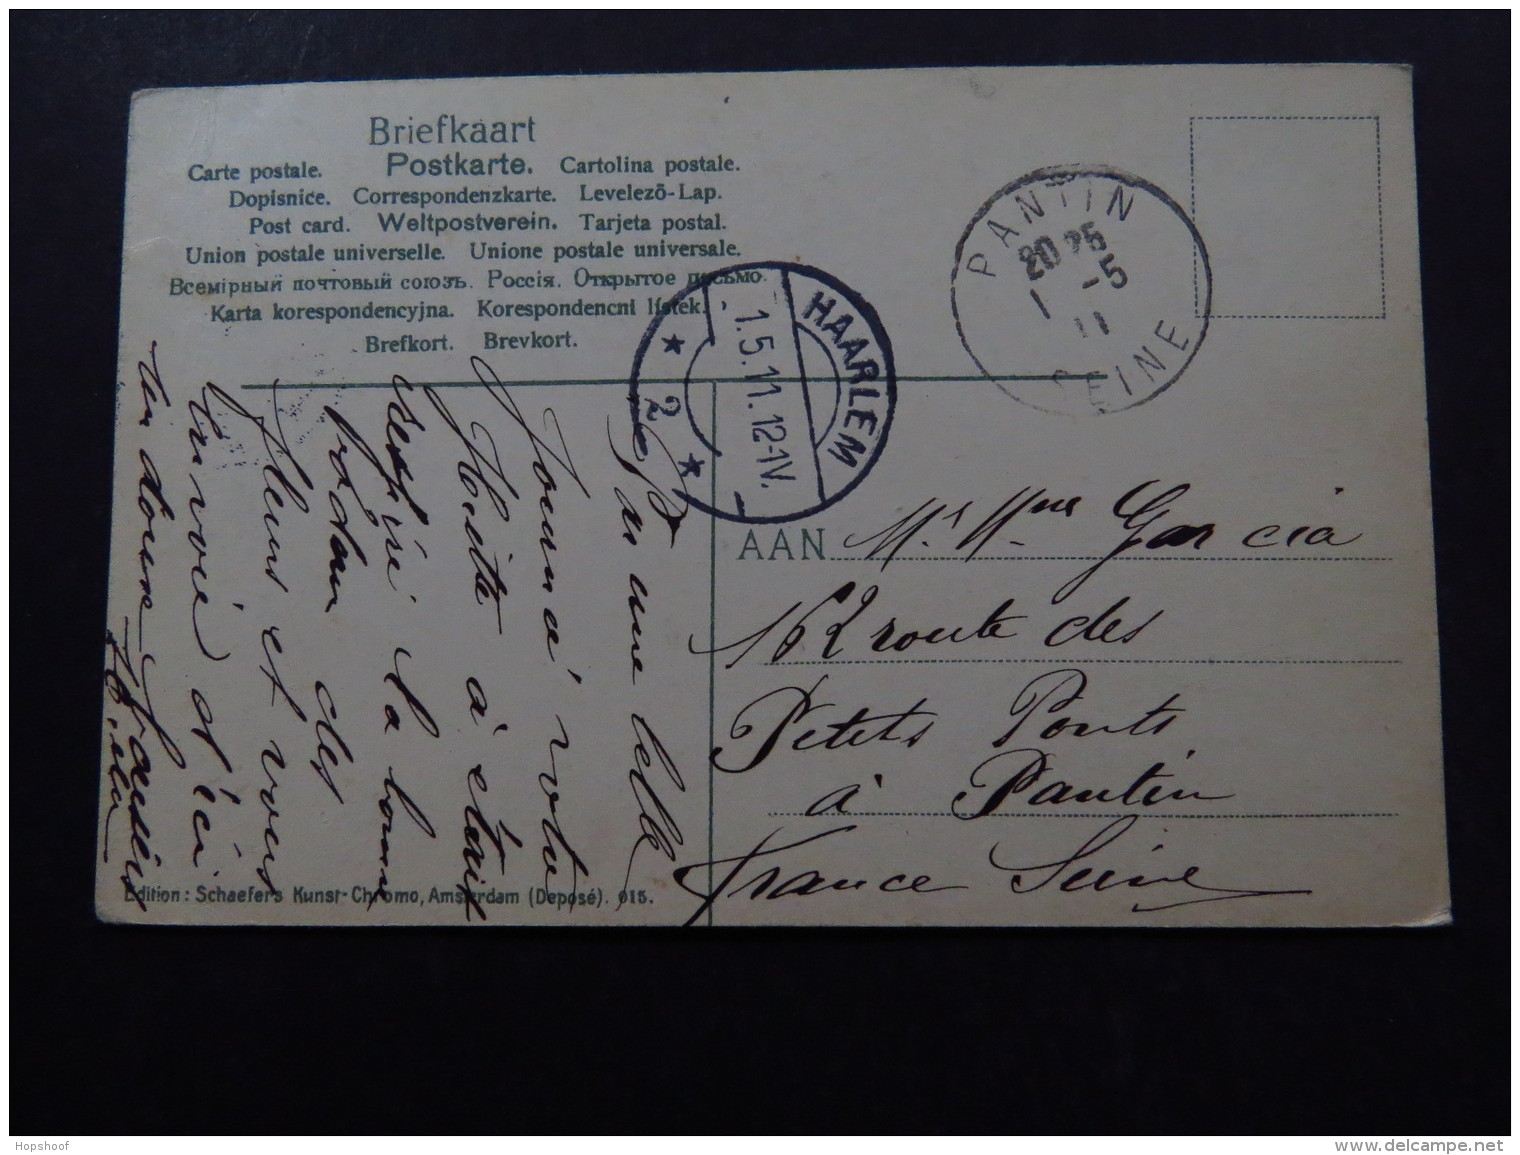 Briefkaart
Carte postale. Postkarte. Cartolina postale.
Dopisnice. Correspondenzkarte. Levelezõ-Lap.
Post card. Weltpostverein. Tarjeta postal.
Union postale universelle. Unione postale universale.
Всемірный почтовый союзъ. Россія. Открытое письмо.
Karta korespondencyjna. Korespondencní lístek.
Brefkort. Brevkort.
PANTIN
20 25
1 -5
11
SEINE
HAARLEM
1.5.11.12-1V.
2
Par une belle
Journeé votre
Yvette à étais
respiré la bonne
odeur des
fleurs et vous
envoié d'ici
un doux baisier
AAN Mr Mme Garcia
162 route des
Petits Ponts
à Pantin
France Seine
Edition: Schaefer's Kunst-Chromo, Amsterdam (Deposé). 015.
Hopshoof
www.delcampe.net